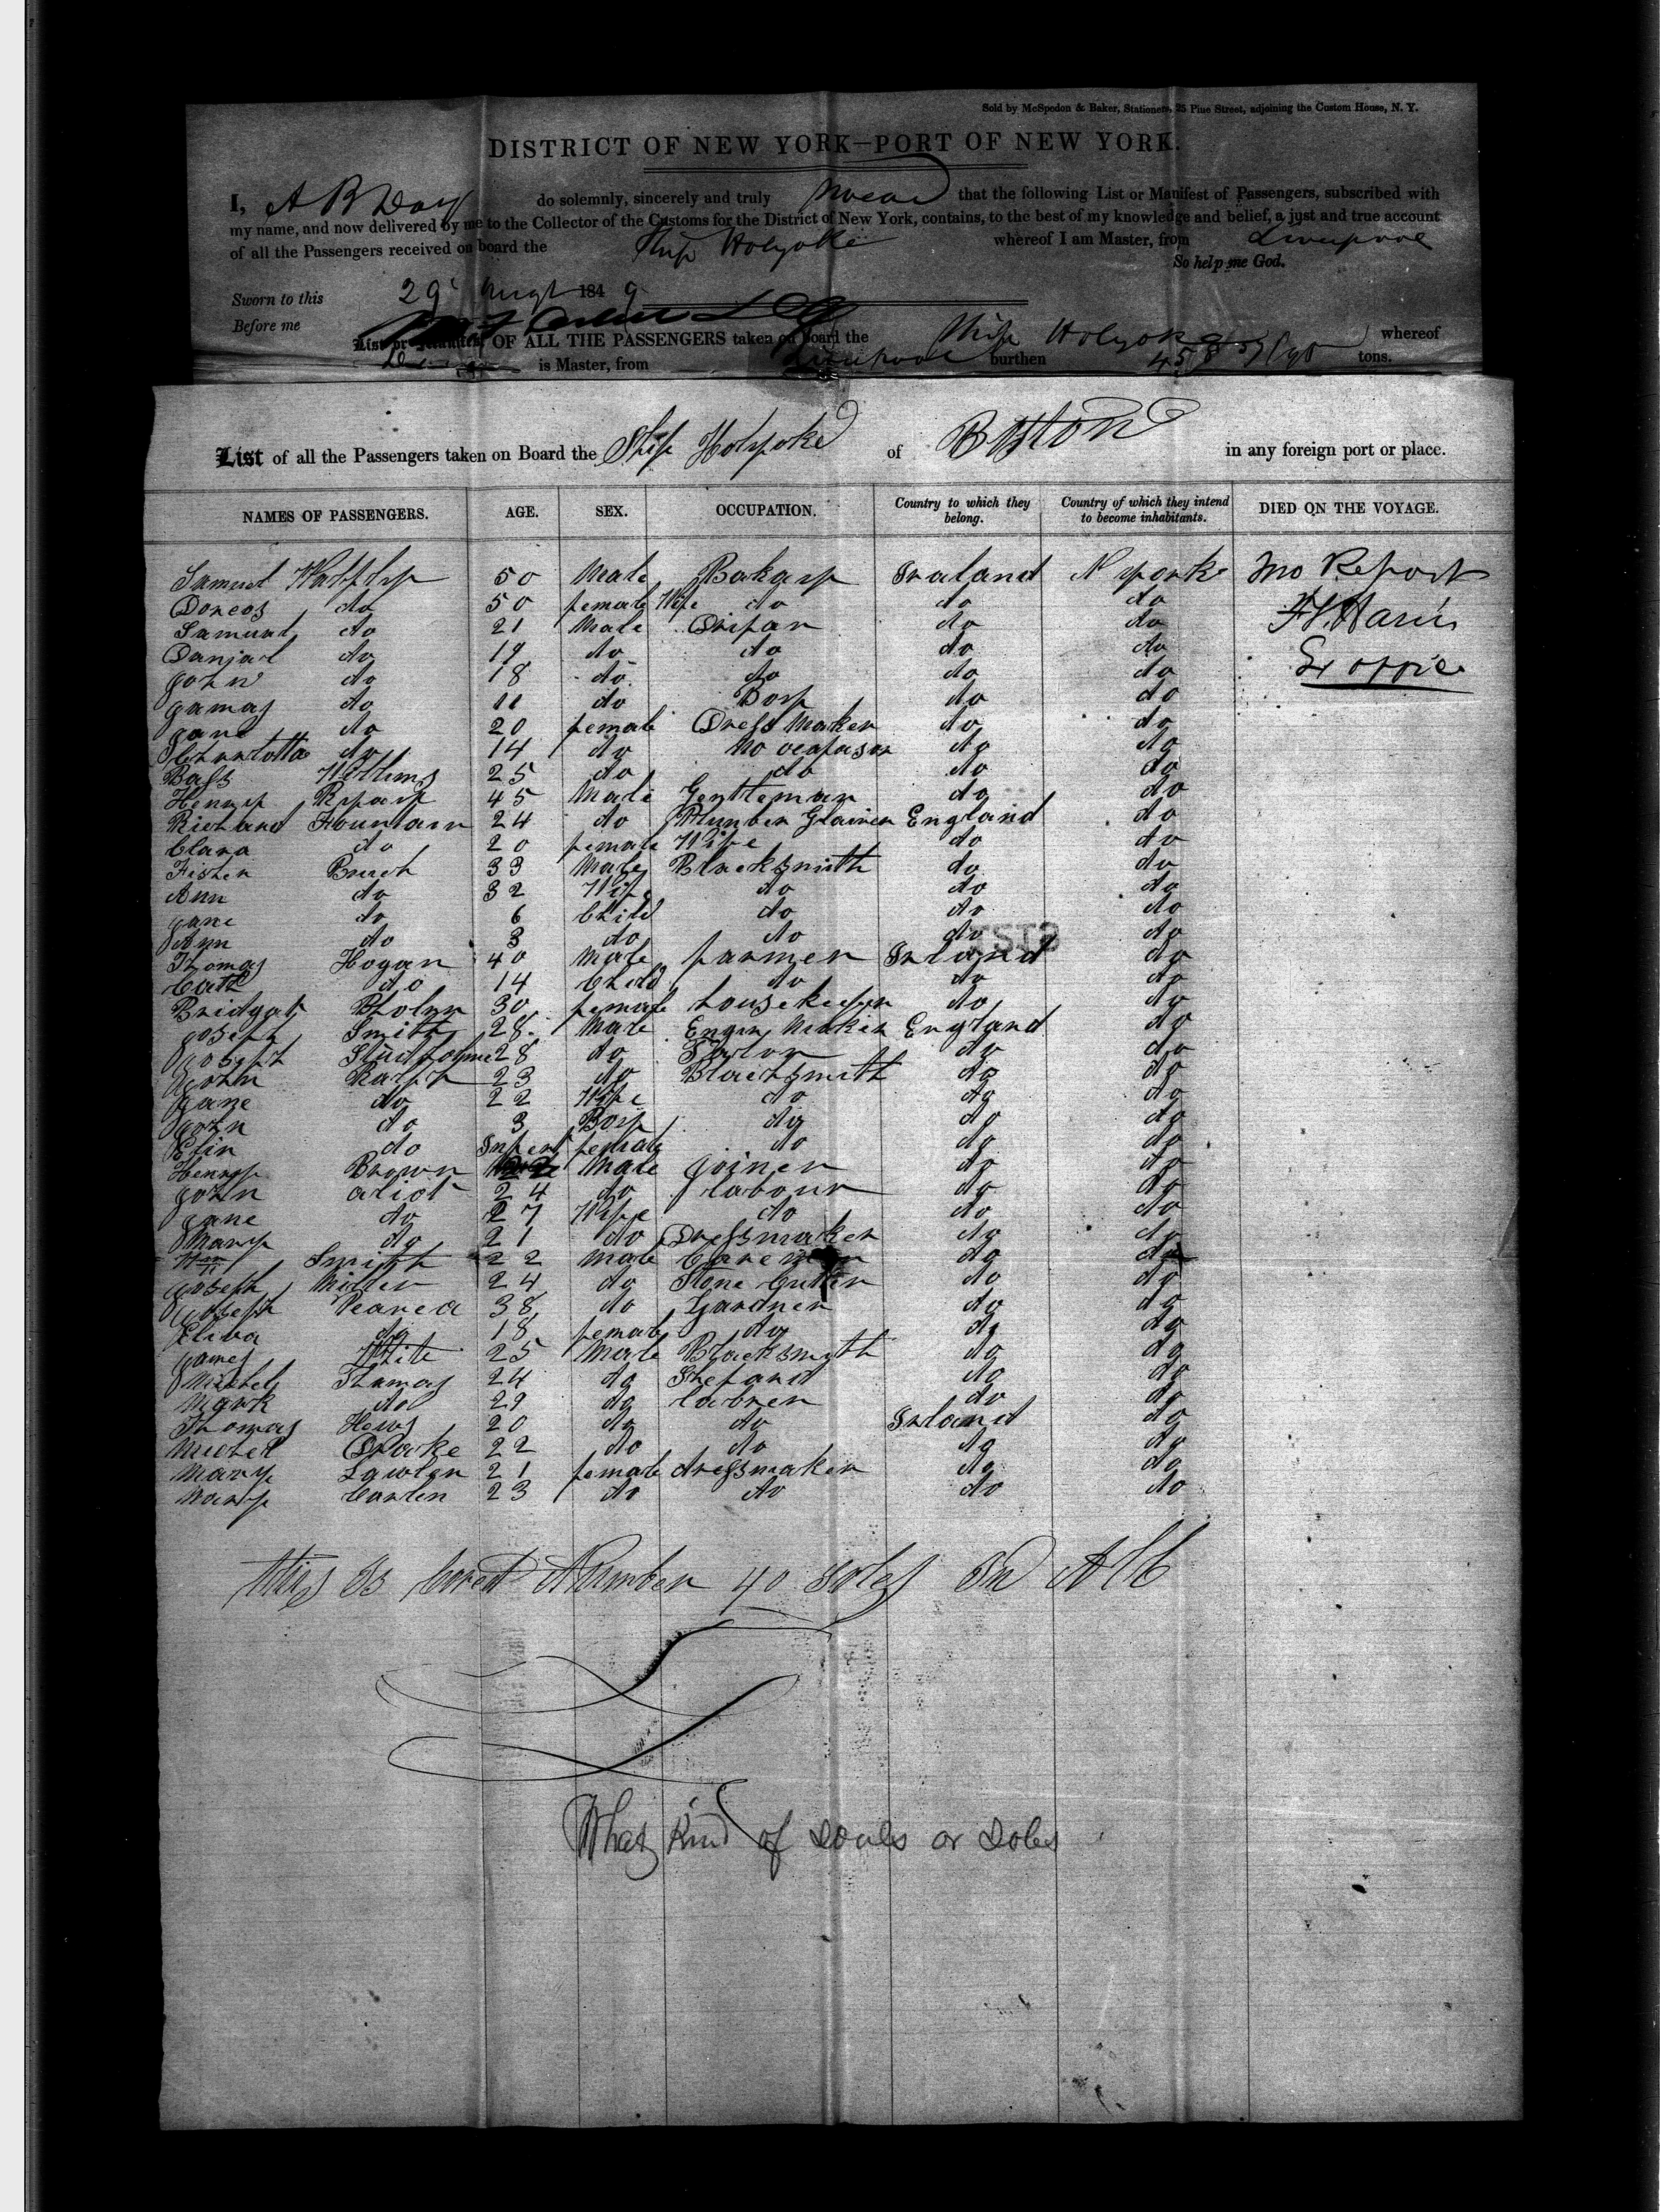 Sold by McSpedon & Baker, Stationers, 25 Pine Street, adjoining the Custom House, N. Y.
DISTRICT OF NEW YORK—PORT OF NEW YORK.
I, A B Day do solemnly, sincerely and truly swear that the following List or Manifest of Passengers, subscribed with
my name, and now delivered by me to the Collector of the Customs for the District of New York, contains, to the best of my knowledge and belief, a just and true account
of all the Passengers received on board the Ship Holyoke whereof I am Master, from Liverpool
So help me God.
Sworn to this 29 1849
Before me
List or Manifest, OF ALL THE PASSENGERS taken on board the Ship Holyoke whereof
is Master, from Liverpool burthen tons.
List of all the Passengers taken on Board the Ship Holyoke of Boston in any foreign port or place.
NAMES OF PASSENGERS. AGE. SEX. OCCUPATION. Country to which they belong. Country of which they intend to become inhabitants. DIED ON THE VOYAGE.
Samuel 50 Male Iraland N yorke no Report
Dorcos do 50 female Wife do do do
Samuel do 21 Male do do
Danjail do 19 do do do do
John do 18 do do do do
Jamas do 11 do Boy do do
Jane do 20 female Dress Maker do do
do 14 do do do
Bass 25 do do do do
Henry 45 Male Gentleman do do
Richard Fountain 24 do Plumber England do
Clara do 20 female Wife do do
Fisher 33 Male Blacksmith do do
Ann do 32 Wife do do do
Jane do 6 Child do do do
Ann do 3 do do do do
Thomas Hogan 40 Male farmer Irland do
Cath do 14 Child do do do
Bridgat 30 female housekeeper do do
Joseph Smith 28 Male Engin Maker England do
28 do do do
John Ralph 23 do Blacksmith do do
Jane do 22 Wife do do do
John do 3 Boy do do do
Elin do Infent female do do do
Henry Brown Male Joiner do do
John 24 do labour do do
Jane do 27 Wife do do do
Mary do 21 do Dressmaker do do
Wm Smith 22 male do do
Joseph Miller 24 do Stone Cutter do do
Joseph 38 do Gardner do do
Eliza do 18 female do do do
James White 25 Male Blacksmith do do
Thomas 24 do do do
Mark do 29 do labrer do do
Thomas Hews 20 do do Irland do
22 do do do do
Mary Lawler 21 female dressmaker do do
Mary Carlen 23 do do do do
this Is Corect Number 40 Soles In All
What Kind of Souls or Soles